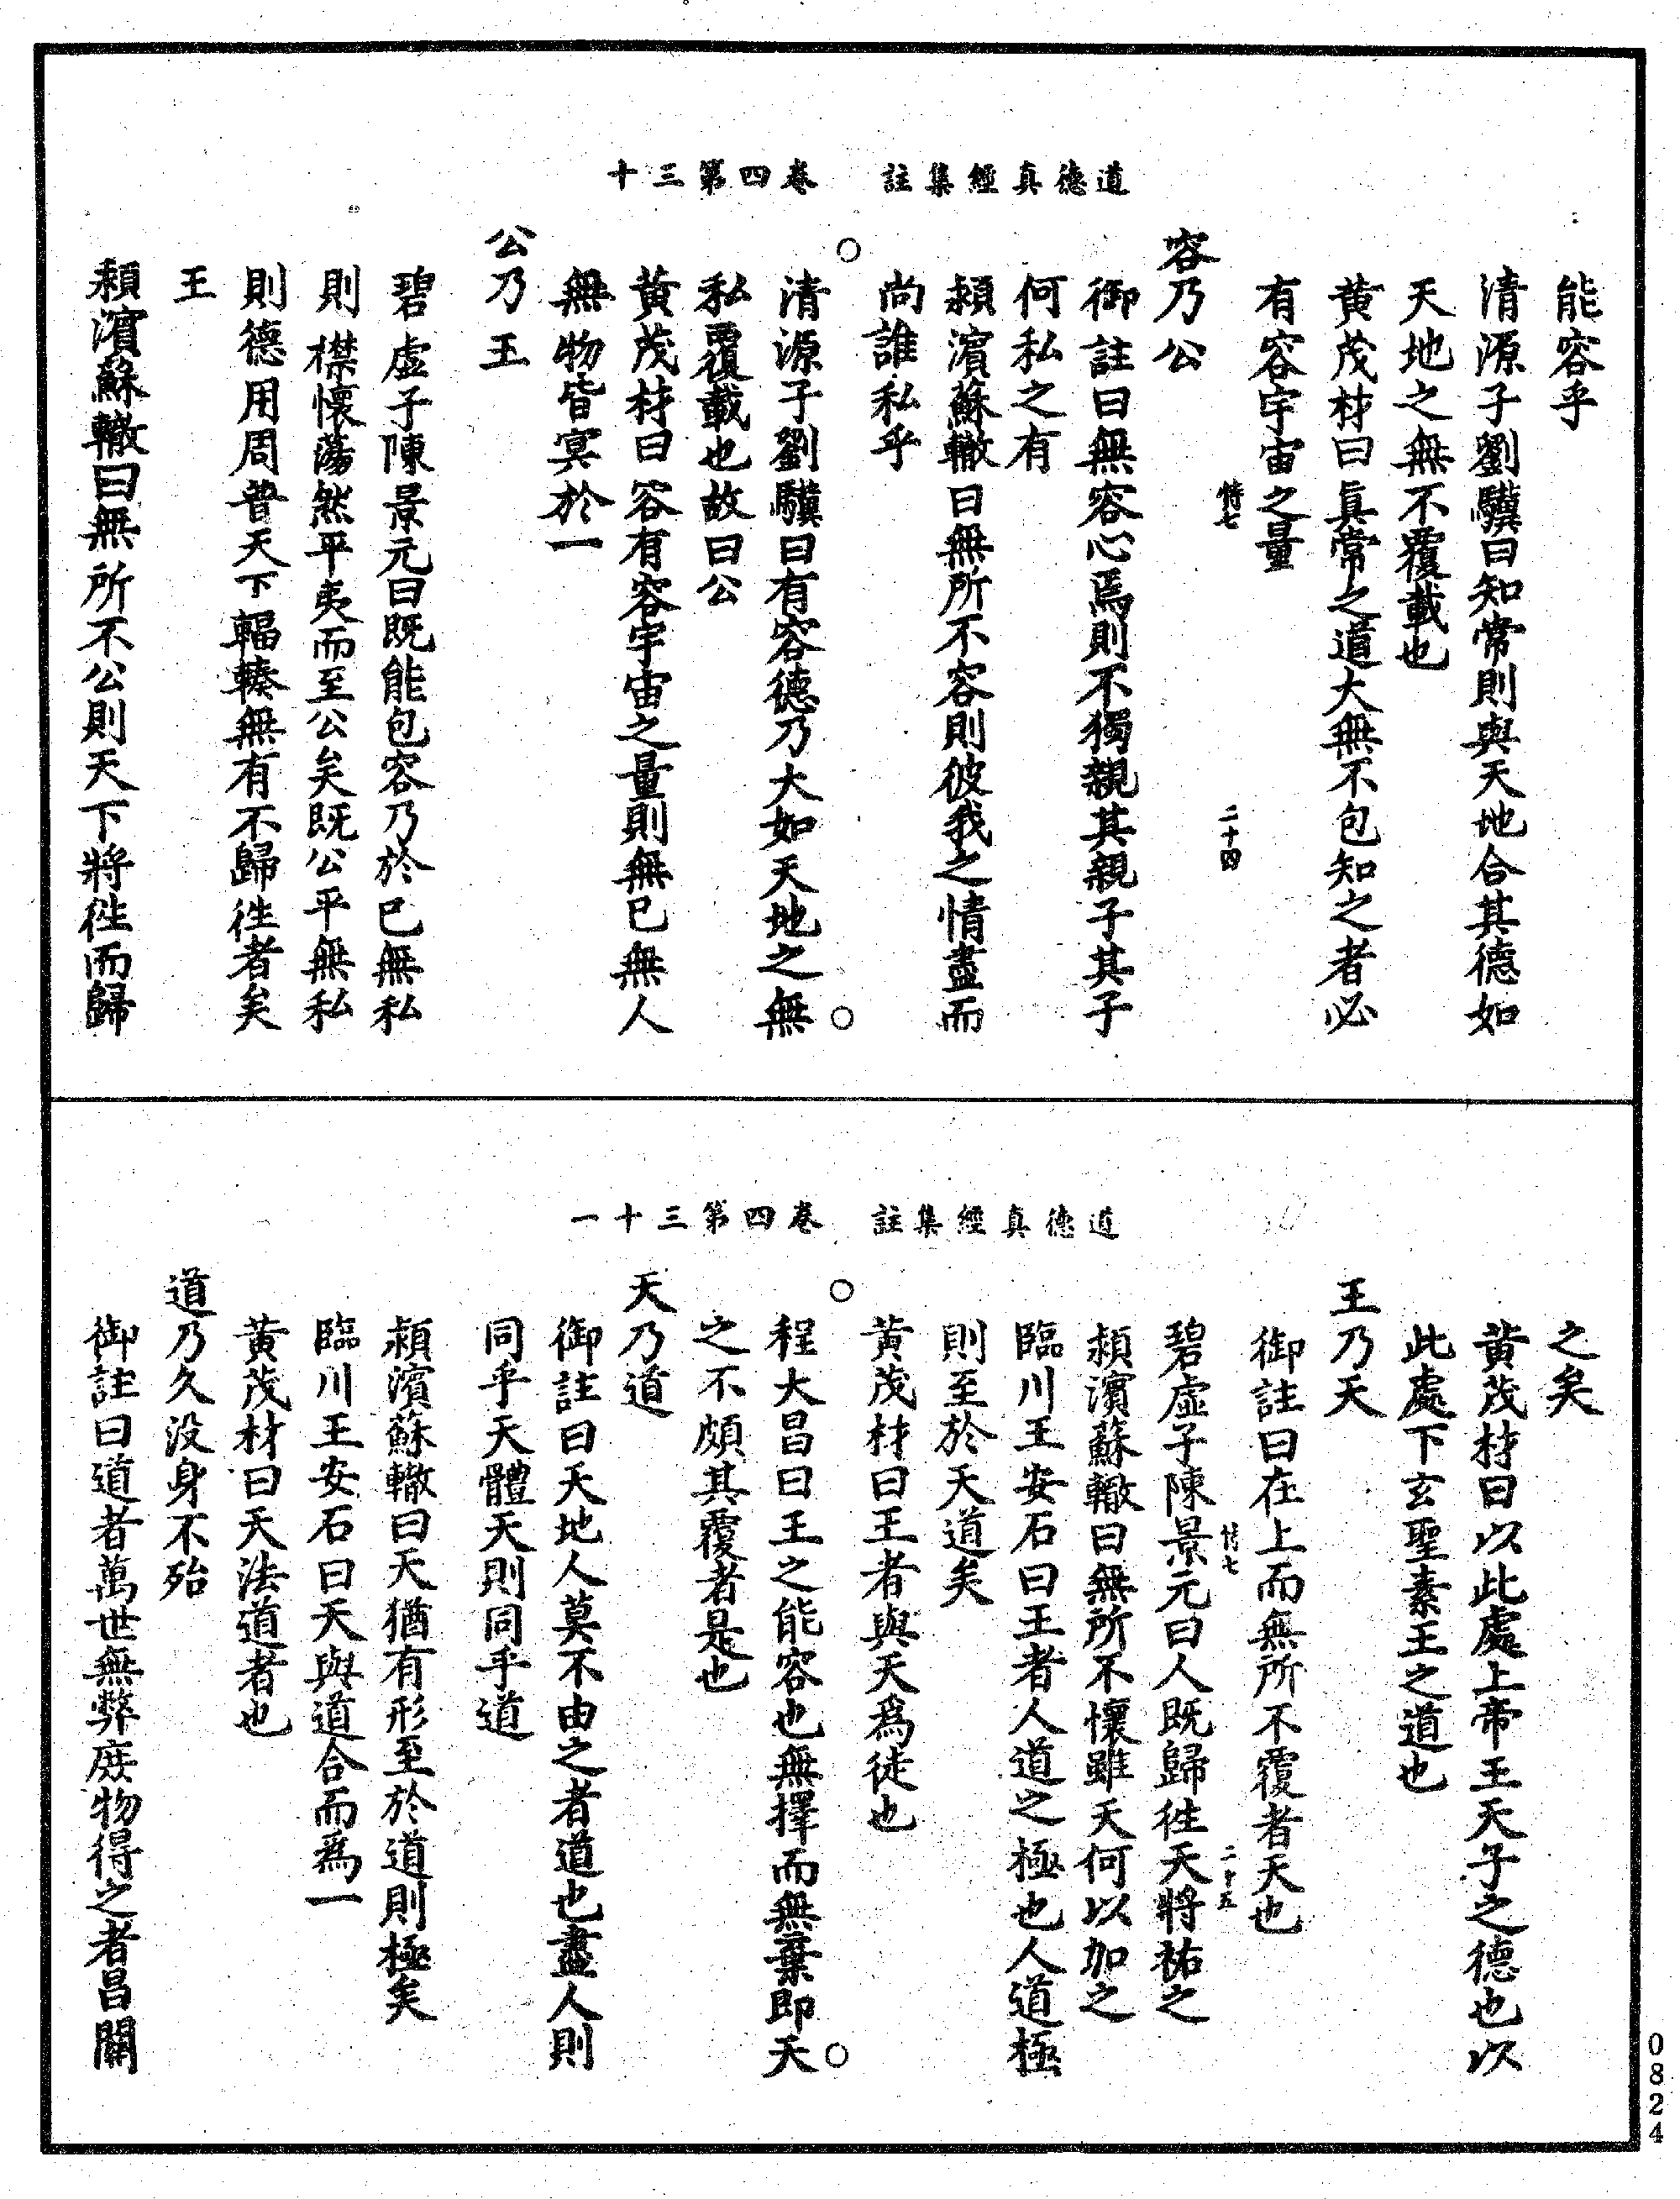 道德真經集註　卷四第三十
能容乎
清源子劉驥曰知常則與天地合其德如
天地之無不覆載也
黄茂材曰真常之道大無不包知之者必
有容宇宙之量
二十四
容乃公
御註曰無容心焉則不獨親其親子其子
何私之有
頴濱蘇轍曰無所不容則彼我之情盡而
尚誰私乎
清源子劉驥曰有容德乃大如天地之無
私覆載也故曰公
黄茂材曰容有容宇宙之量則無已無人
無物皆冥於一
公乃王
碧虛子陳景元曰既能包容乃於已無私
則襟懷蕩然平夷而至公矣既公平無私
則德用周普天下輻輳無有不歸徃者矣
王
頴濱蘇轍曰無所不公則天下將徃而歸
道德真經集註　卷四第三十一
之矣
黄茂材曰以此處上帝王天子之德也以
此處下玄聖素王之道也
王乃天
御註曰在上而無所不覆者天也
二十五
碧虛子陳景元曰人既歸徃天將祐之
頴濱蘇轍曰無所不懷雖天何以加之
臨川王安石曰王者人道之極也人道極
則至於天道矣
黄茂材曰王者與天爲徒也
程大昌曰王之能容也無擇而無棄即天
之不頗其覆者是也
天乃道
御註曰天地人莫不由之者道也盡人則
同乎天體天則同乎道
頴濱蘇轍曰天猶有形至於道則極矣
臨川王安石曰天與道合而爲一
黄茂材曰天法道者也
道乃久没身不殆
御註曰道者萬世無弊庶物得之者昌關
0824